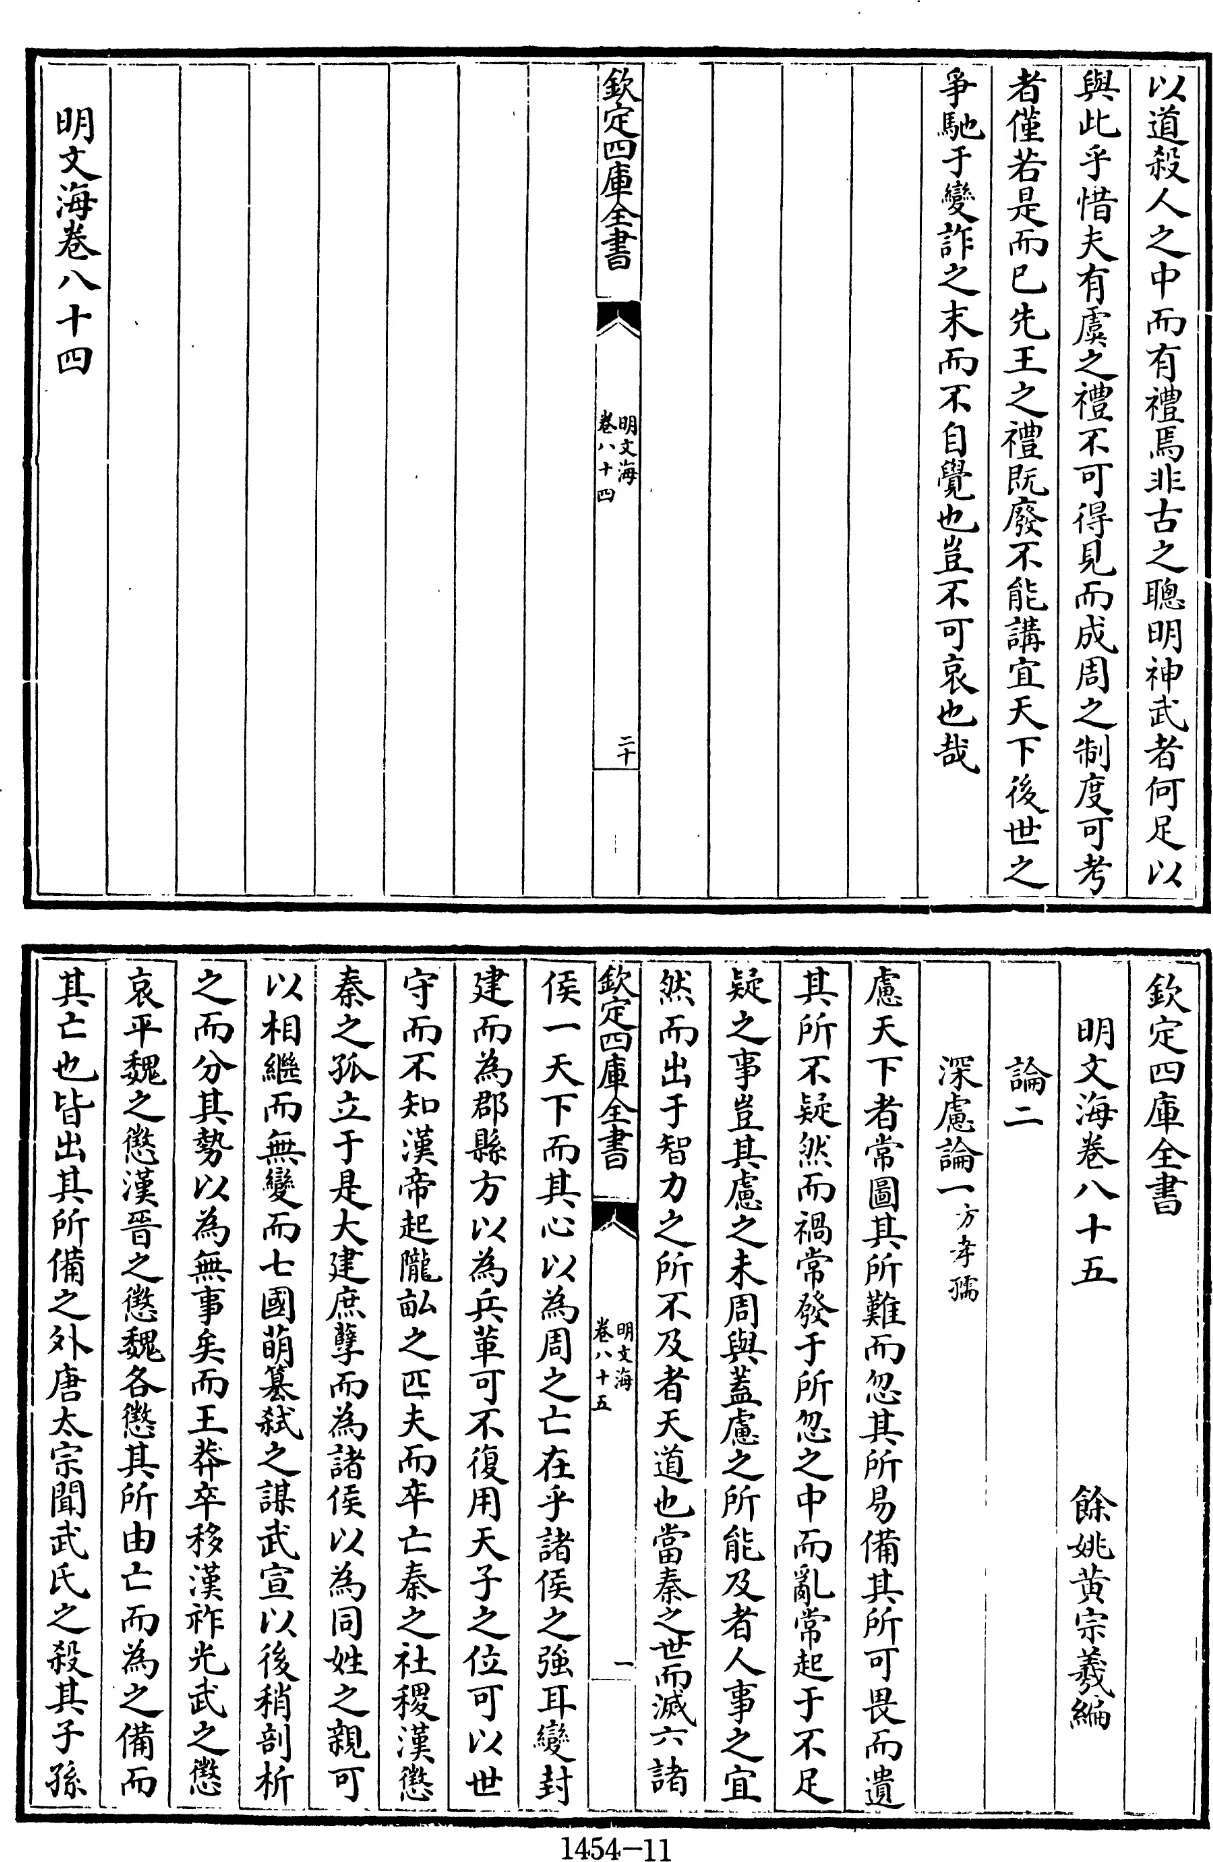 以道殺人之中而有禮焉非古之聰明神武者何足以
與此乎惜夫有虞之禮不可得見而成周之制度可考
者僅若是而已先王之禮既廢不能講宜天下後世之
爭馳于變詐之末而不自覺也豈不可哀也哉
欽定四庫全書
明文海
卷八十四
二十
明文海卷八十四
欽定四庫全書
明文海卷八十五
餘姚黄宗羲編
論二
深慮論一
方孝孺
慮天下者常圖其所難而忽其所易備其所可畏而遺
其所不疑然而禍常發于所忽之中而亂常起于不足
疑之事豈其慮之未周與蓋慮之所能及者人事之宜
然而出于智力之所不及者天道也當秦之世而滅六諸
欽定四庫全書
明文海
卷八十五
一
侯一天下而其心以為周之亡在乎諸侯之強耳變封
建而為郡縣方以為兵革可不復用天子之位可以世
守而不知漢帝起隴畝之匹夫而卒亡秦之社稷漢懲
秦之孤立于是大建庶孽而為諸侯以為同姓之親可
以相繼而無變而七國萌篡弑之謀武宣以後稍剖析
之而分其勢以為無事矣而王莽卒移漢祚光武之懲
哀平魏之懲漢晉之懲魏各懲其所由亡而為之備而
其亡也皆出其所備之外唐太宗聞武氏之殺其子孫
1454-11